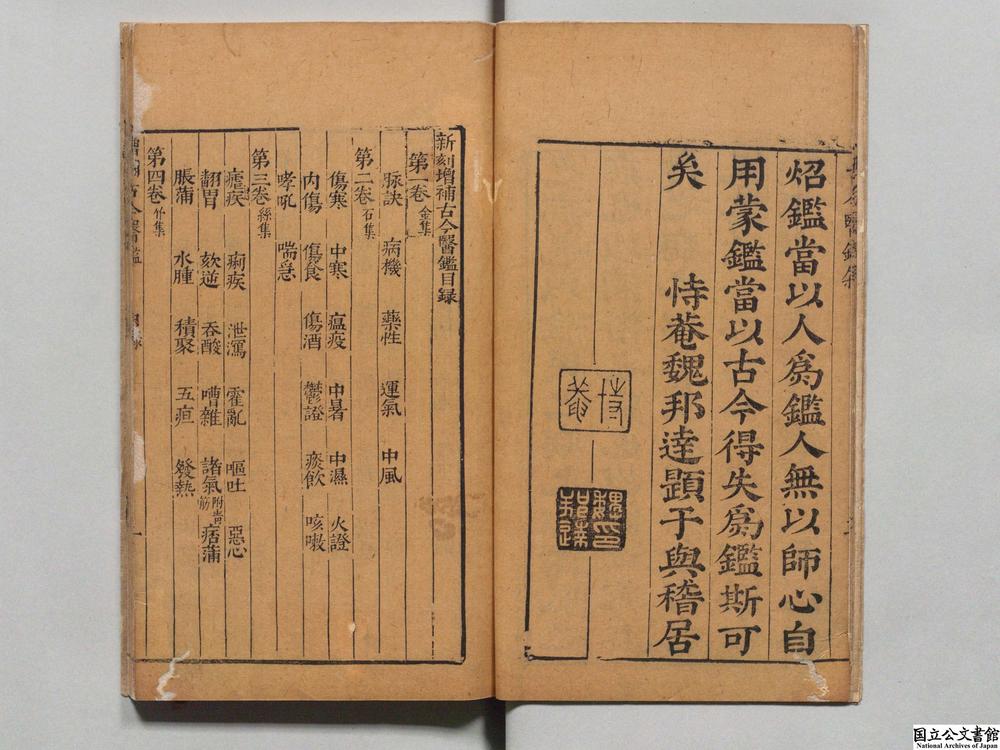 炤鑑當以人爲鑑人無以師心自
用蒙鑑當以古今得失爲鑑斯可
矣
恃菴魏邦達題于與稽居
恃菴
魏邦達印
新刻增補古今醫鑑目録
第一卷 金集
脉訣 病機 藥性 運氣 中風
第二卷 石集
傷寒 中寒 瘟疫 中暑 中濕 火證
内傷 傷食 傷酒 鬱證 痰飲 咳嗽
哮吼 喘急
第三卷 絲集
瘧疾 痢疾 泄瀉 霍亂 嘔吐 惡心
翻胃 欬逆 吞酸 嘈雜 諸氣 附青筋 痞滿
脹蒲 水腫 積聚 五疸 發熱
第四卷 竹集
増補古今醫鑑 目録 一
国立公文書館
National Archives of Japan